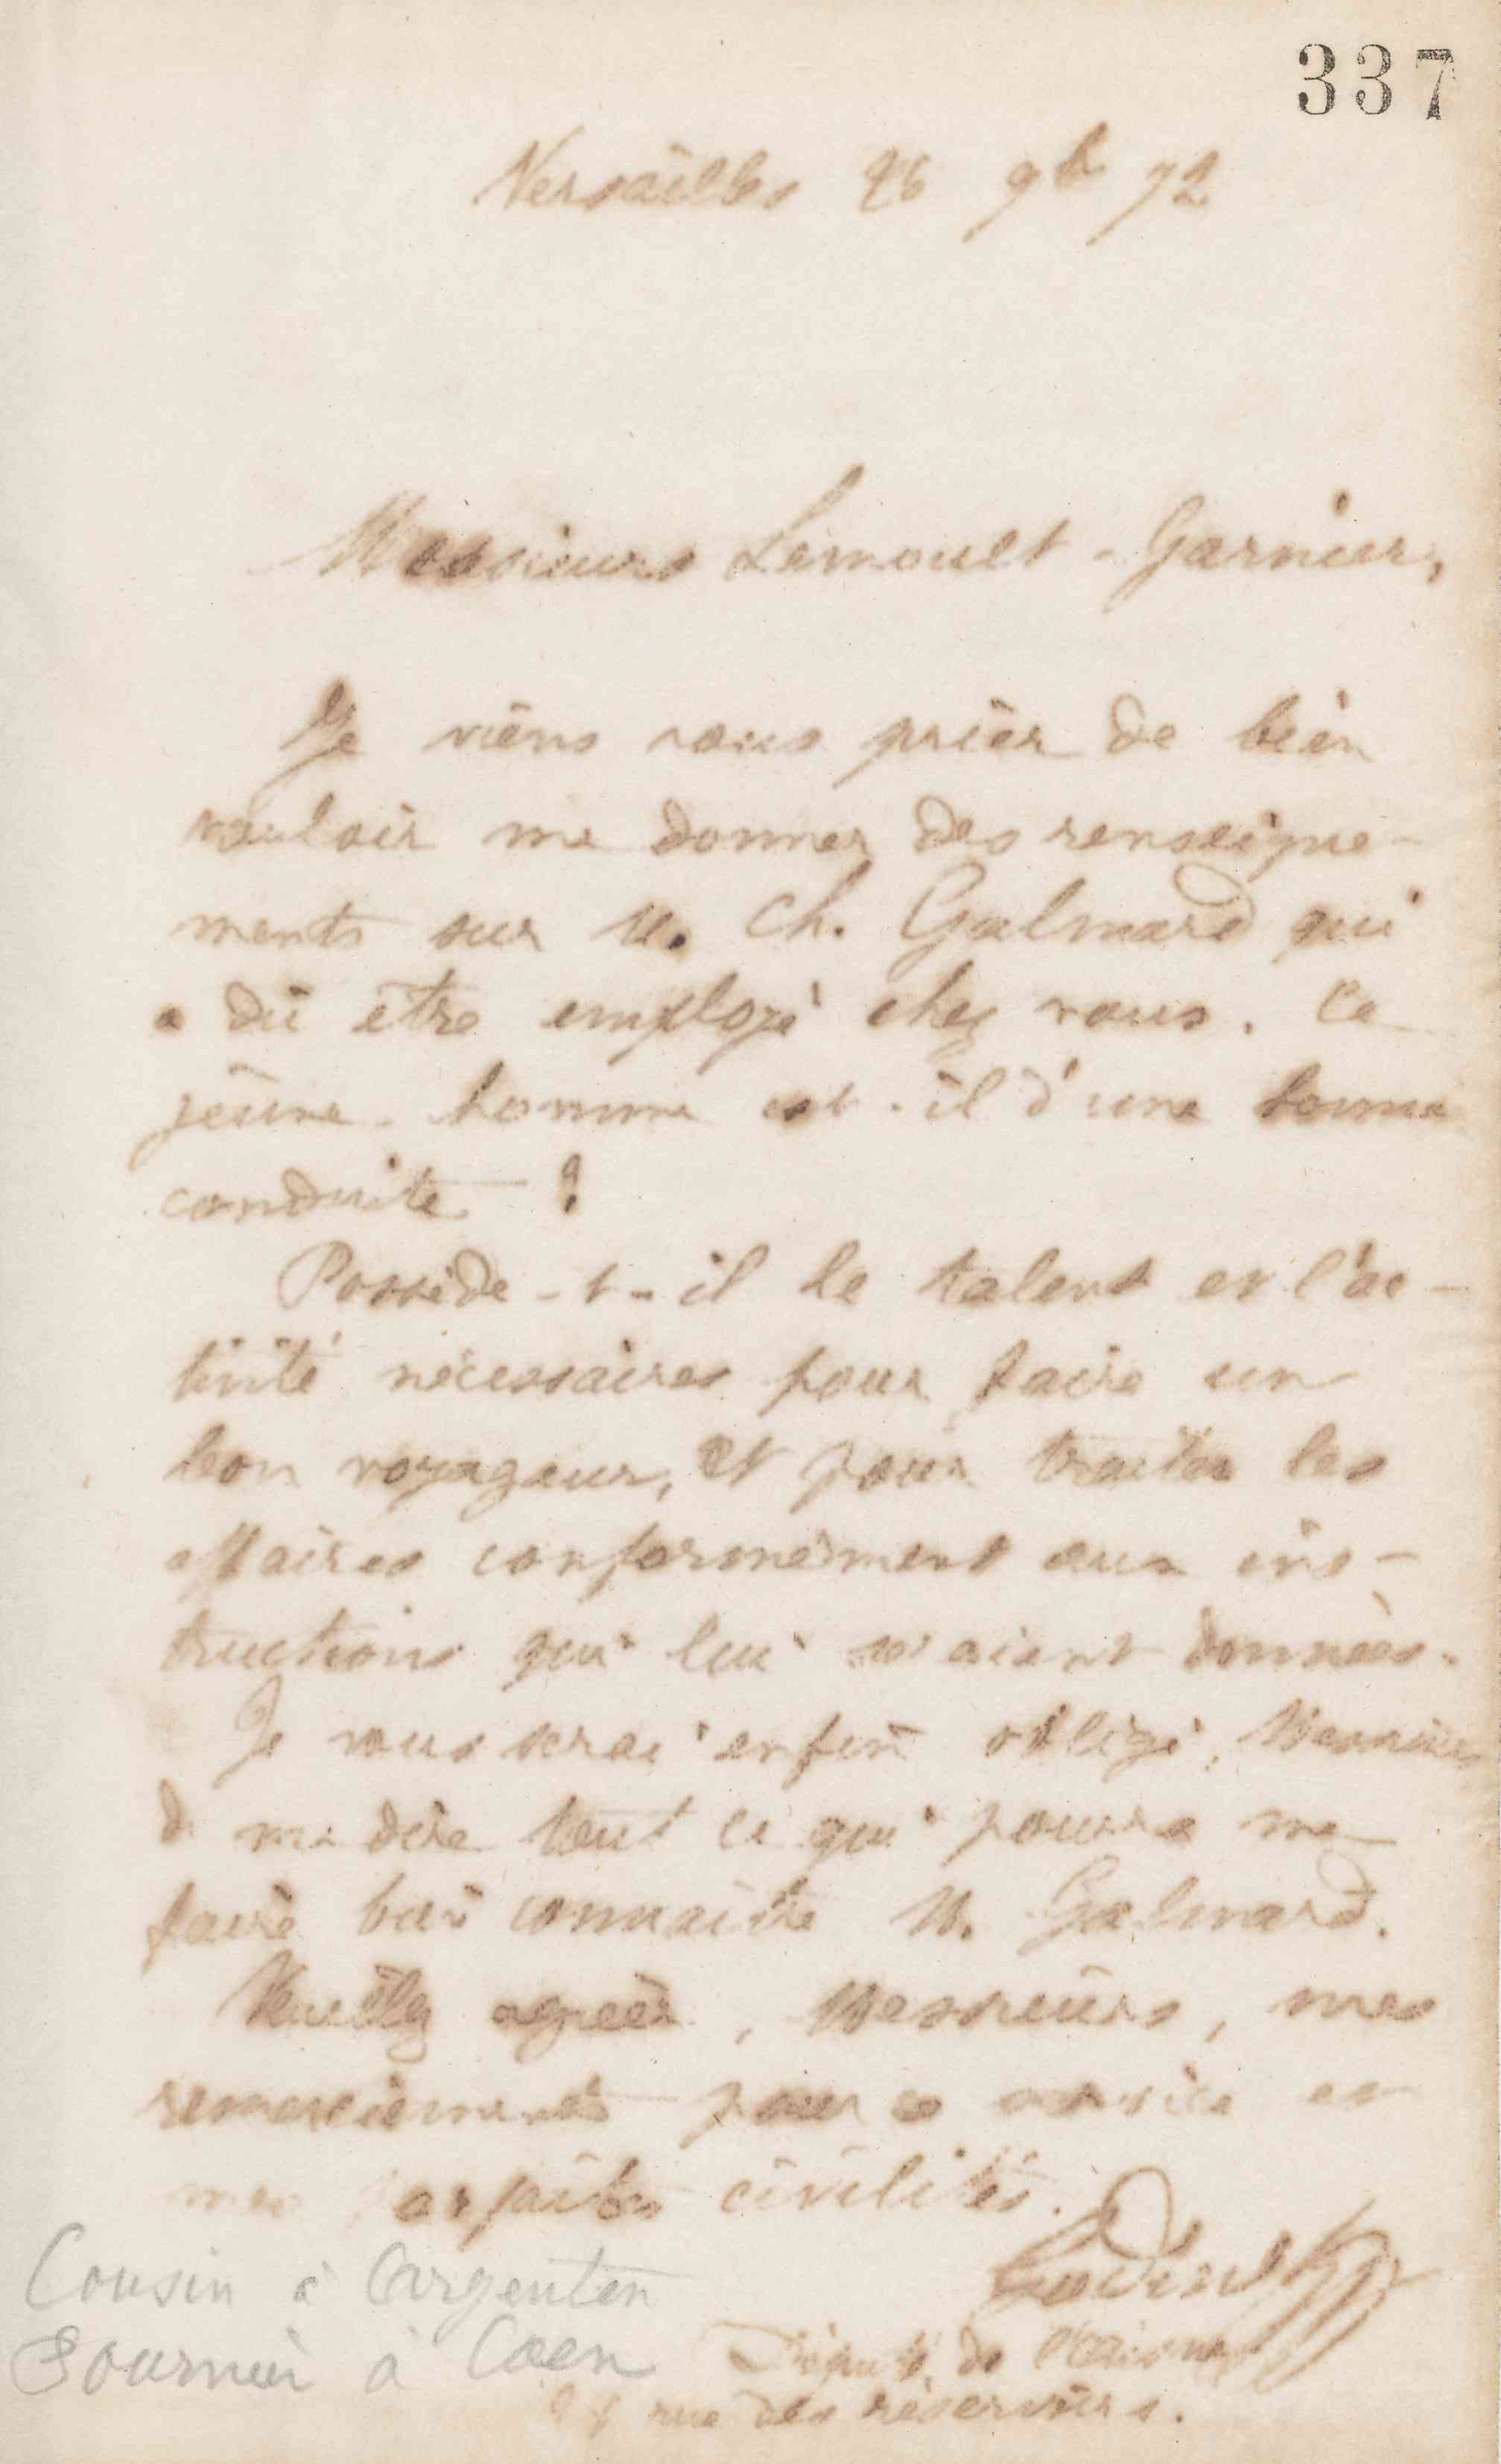 337
Versailles 26 9b 72
Messieurs Lemoult-Garnier,
Je viens vous prier de bien
vouloir me donner des renseigne-
ments sur M. Ch. Galmard qui
a dû être employé chez vous. Ce
jeune homme est-il d'une bonne
conduite ?
Possède-t-il le talent et l'ac-
tivité nécessaires pour faire un
bon voyageur, et pour traiter les
affaires conformément aux ins-
tructions qui lui seraient données.
Je vous serai enfin obligé, Messieurs
de me dire tout ce qui pourra me
faire bien connaître M. Galmard.
Veuillez agréer, Messieurs, mes
remerciements pour ce service et
mes parfaites civilités.
Godin
Cousin à Argentan
Député de l'Aisne
Fournier à Caen
rue des réservoirs.